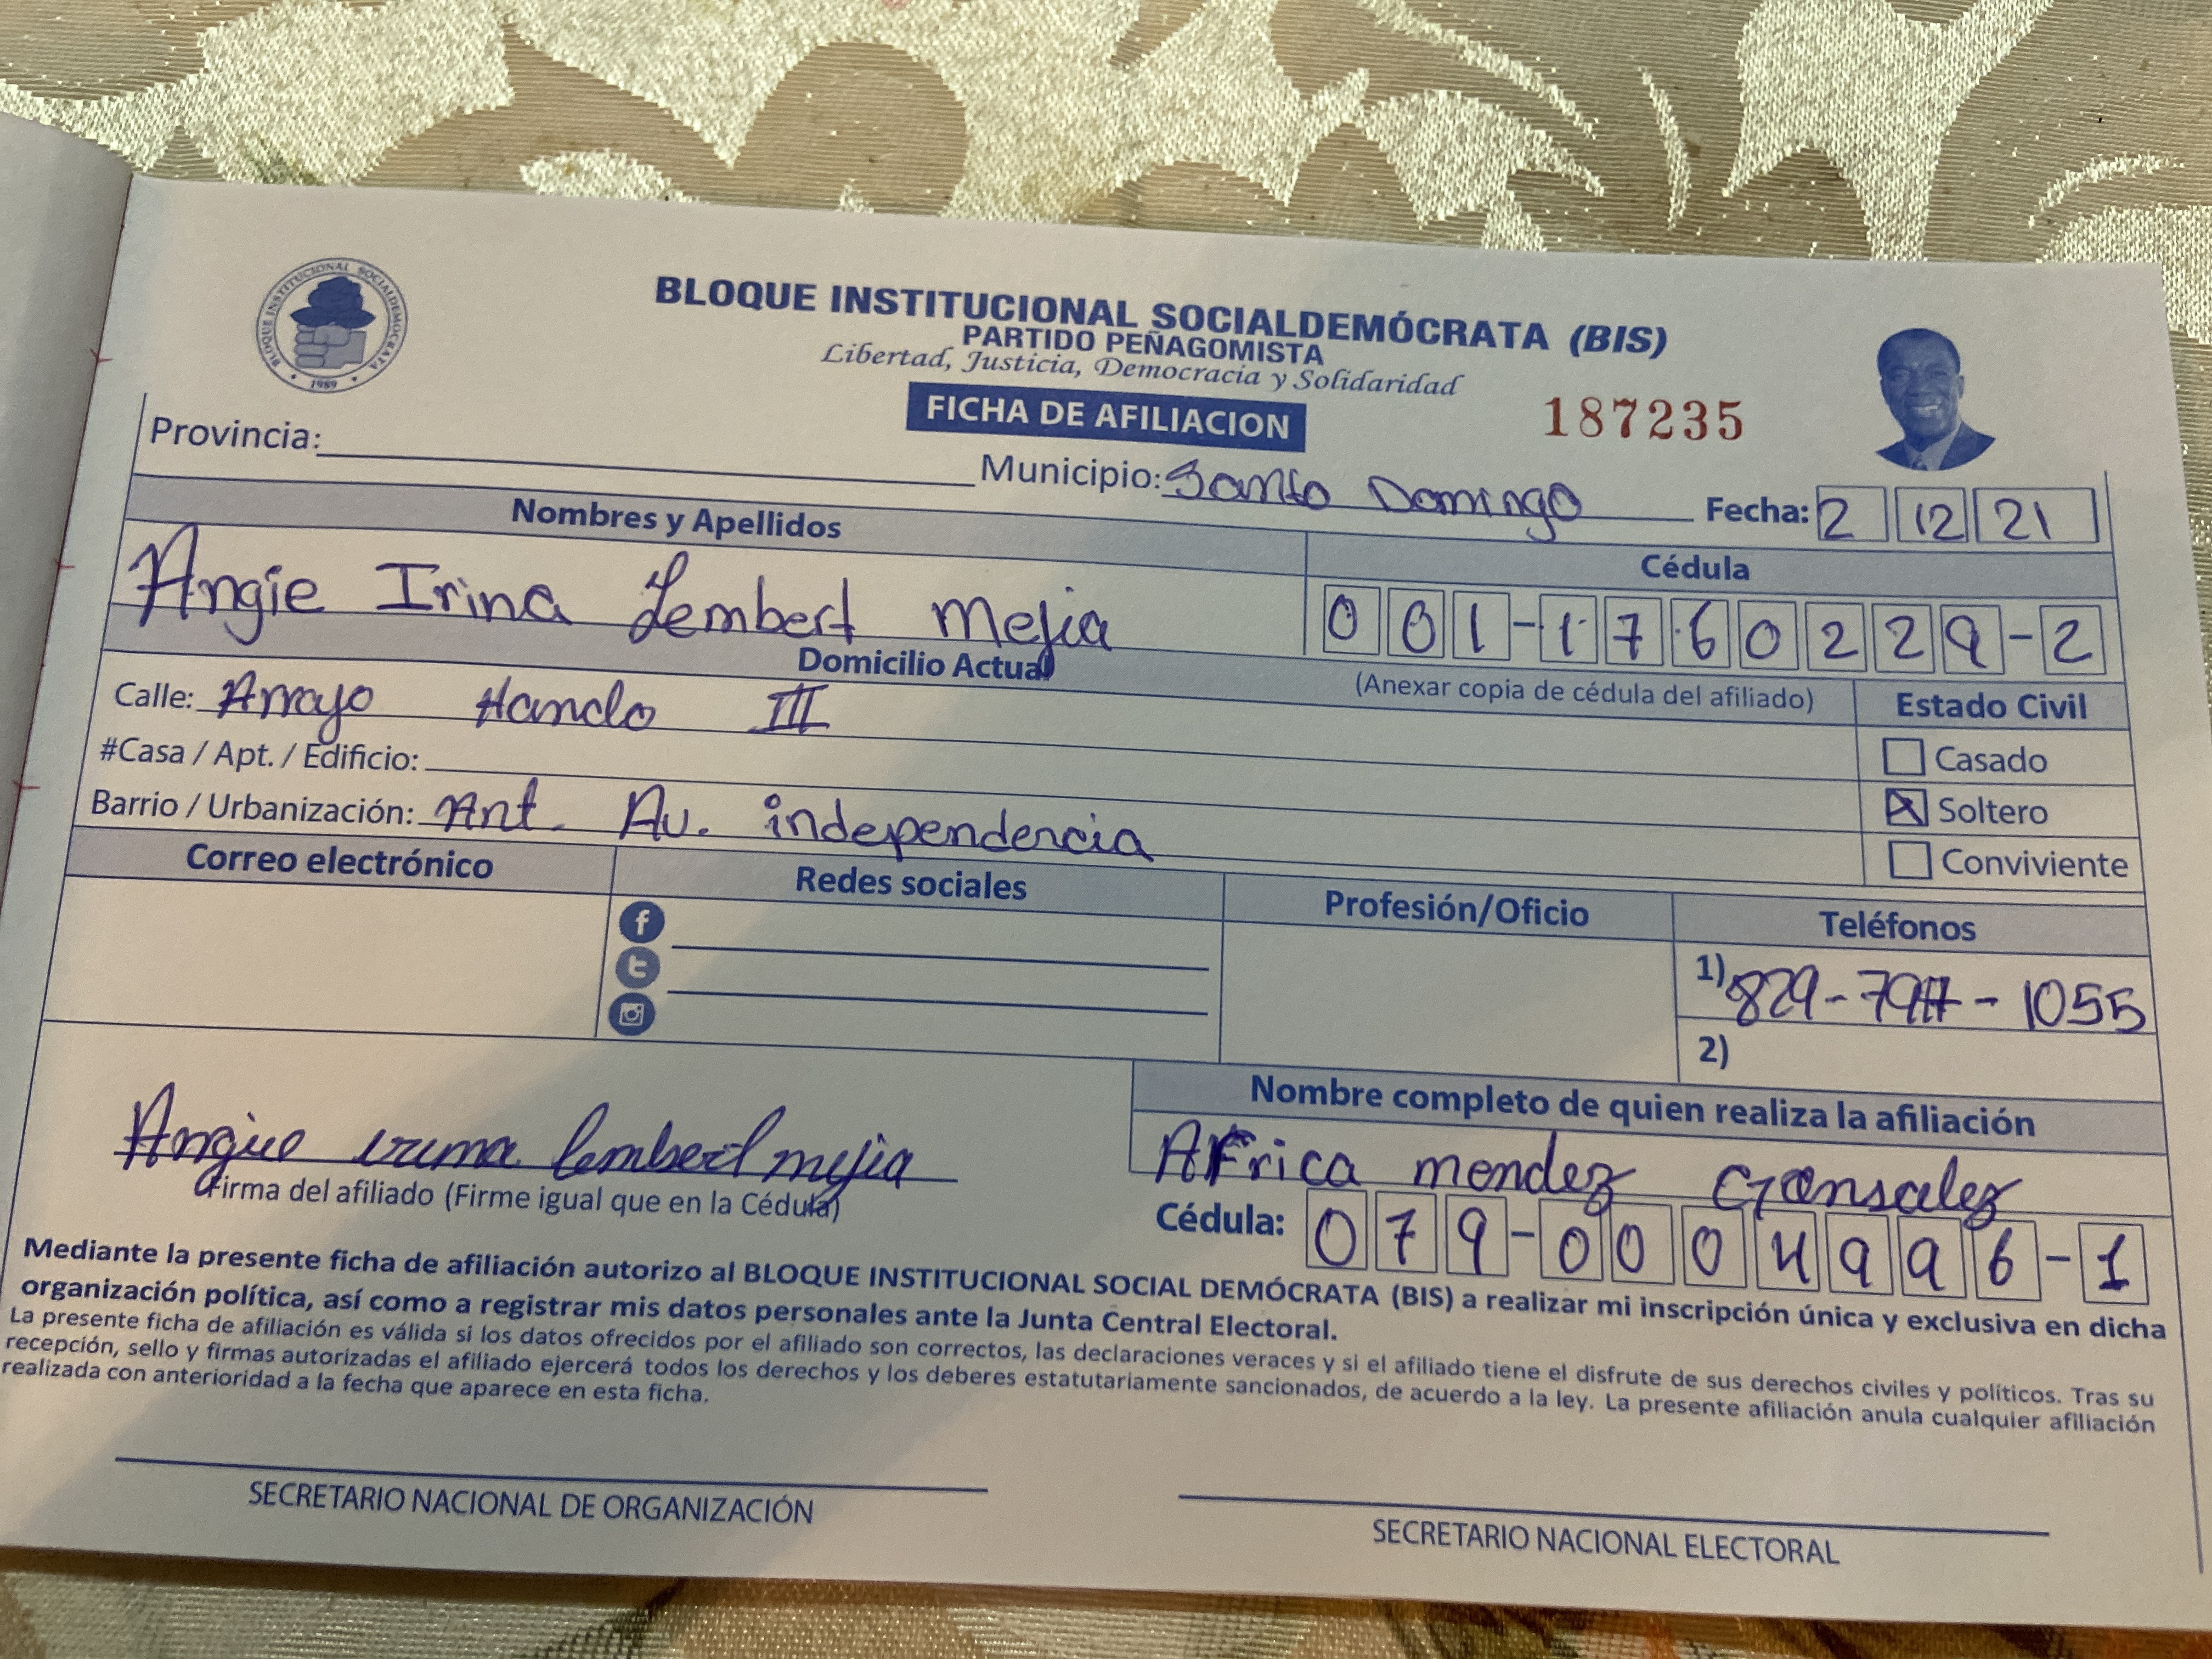 BLOQUE INSTITUCIONAL SOCIALDEMOCRATA
1989
BLOQUE INSTITUCIONAL SOCIALDEMÓCRATA (BIS)
PARTIDO PEÑAGOMISTA
Libertad, Justicia, Democracia y Solidaridad
FICHA DE AFILIACION
187235
Provincia: Municipio: Santo Domingo Fecha: 2 12 21
Nombres y Apellidos
Cédula
Angie Irina Lembert Mejia
001-1760229-2
Domicilio Actual
(Anexar copia de cédula del afiliado)
Estado Civil
Calle: Arroyo Hando III
Casado
#Casa / Apt. / Edificio:
Soltero
Barrio / Urbanización: Ant. Av. independencia
Conviviente
Correo electrónico
Redes sociales
Profesión/Oficio
Teléfonos
1) 829- - 1055
2)
Nombre completo de quien realiza la afiliación
Africa mendez Gonsalez
lembert mejia
Firma del afiliado (Firme igual que en la Cédula)
Cédula: 079-0004996-1
Mediante la presente ficha de afiliación autorizo al BLOQUE INSTITUCIONAL SOCIAL DEMÓCRATA (BIS) a realizar mi inscripción única y exclusiva en dicha
organización política, así como a registrar mis datos personales ante la Junta Central Electoral.
La presente ficha de afiliación es válida si los datos ofrecidos por el afiliado son correctos, las declaraciones veraces y si el afiliado tiene el disfrute de sus derechos civiles y políticos. Tras su
recepción, sello y firmas autorizadas el afiliado ejercerá todos los derechos y los deberes estatutariamente sancionados, de acuerdo a la ley. La presente afiliación anula cualquier afiliación
realizada con anterioridad a la fecha que aparece en esta ficha.
SECRETARIO NACIONAL DE ORGANIZACIÓN
SECRETARIO NACIONAL ELECTORAL